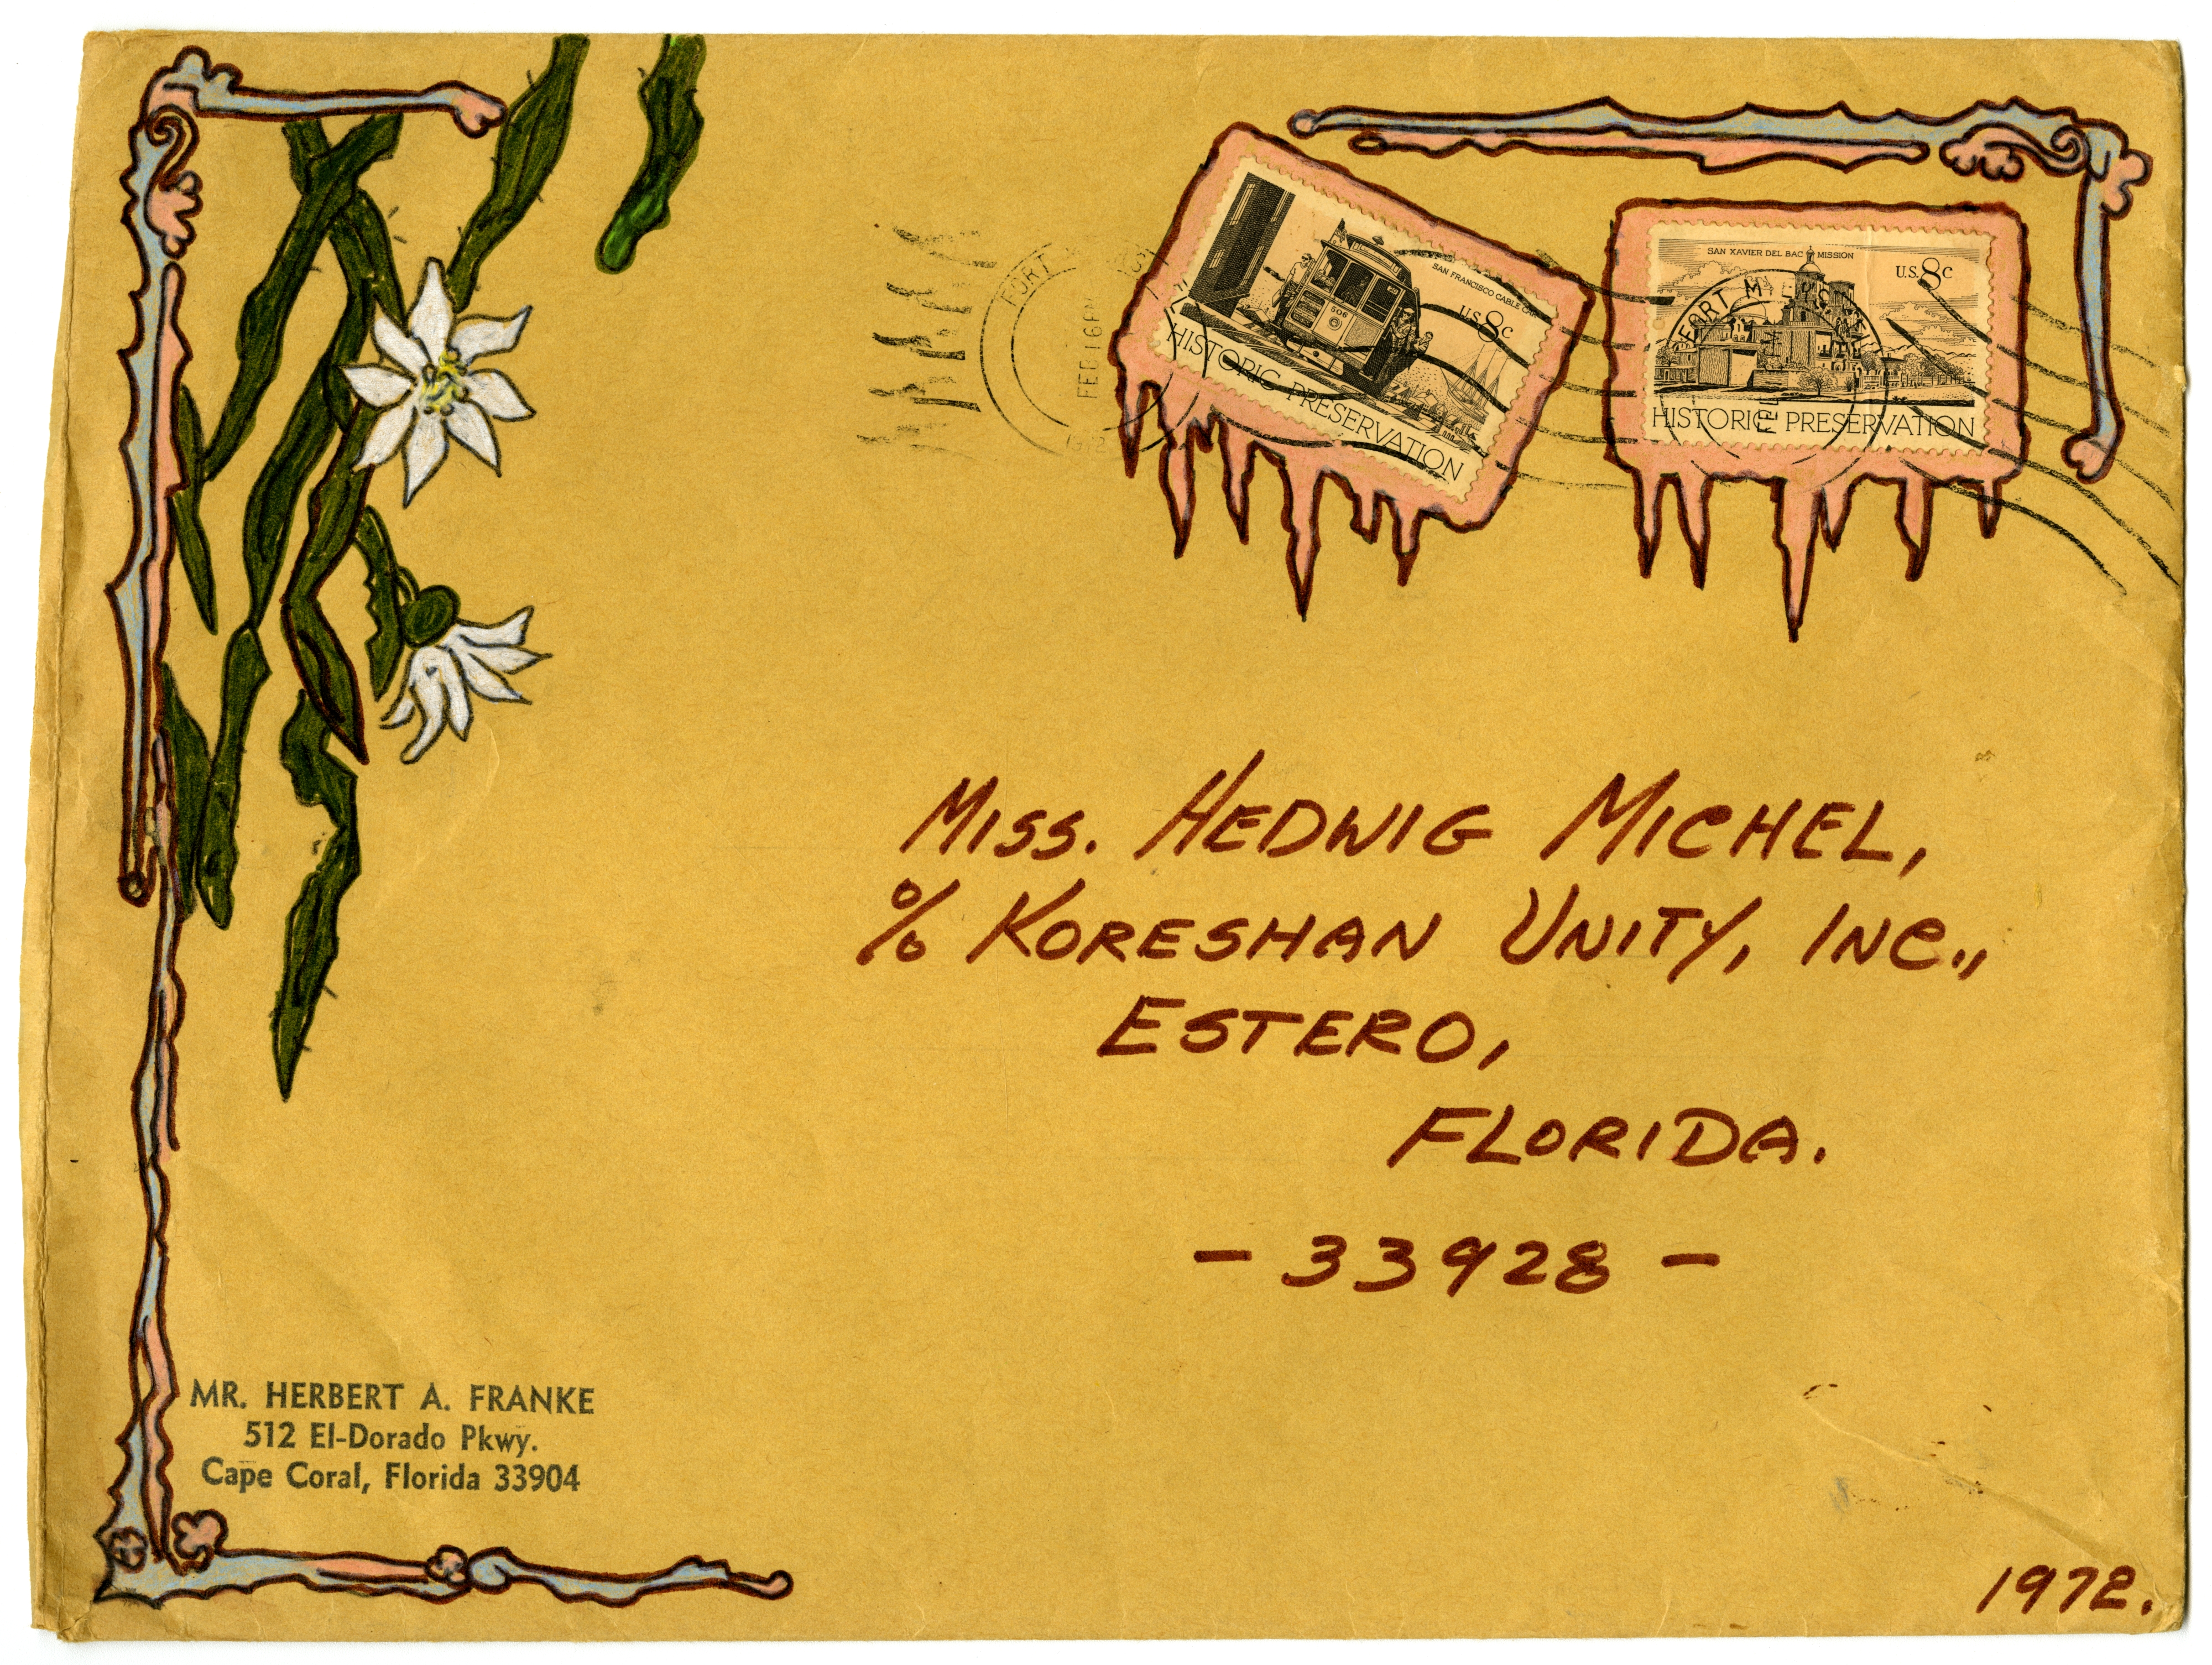 SAN FRANCISCO CABLE CAR
U.S. 8c
506
HISTORIC PRESERVATION
SAN XAVIER DEL BAC MISSION
U.S. 8c
HISTORIC PRESERVATION
FORT
FEB 16 PM
FORT
MISS. HEDWIG MICHEL,
% KORESHAN UNITY, INC.,
ESTERO,
FLORIDA.
- 33928 -
MR. HERBERT A. FRANKE
512 El-Dorado Pkwy.
Cape Coral, Florida 33904
1972.